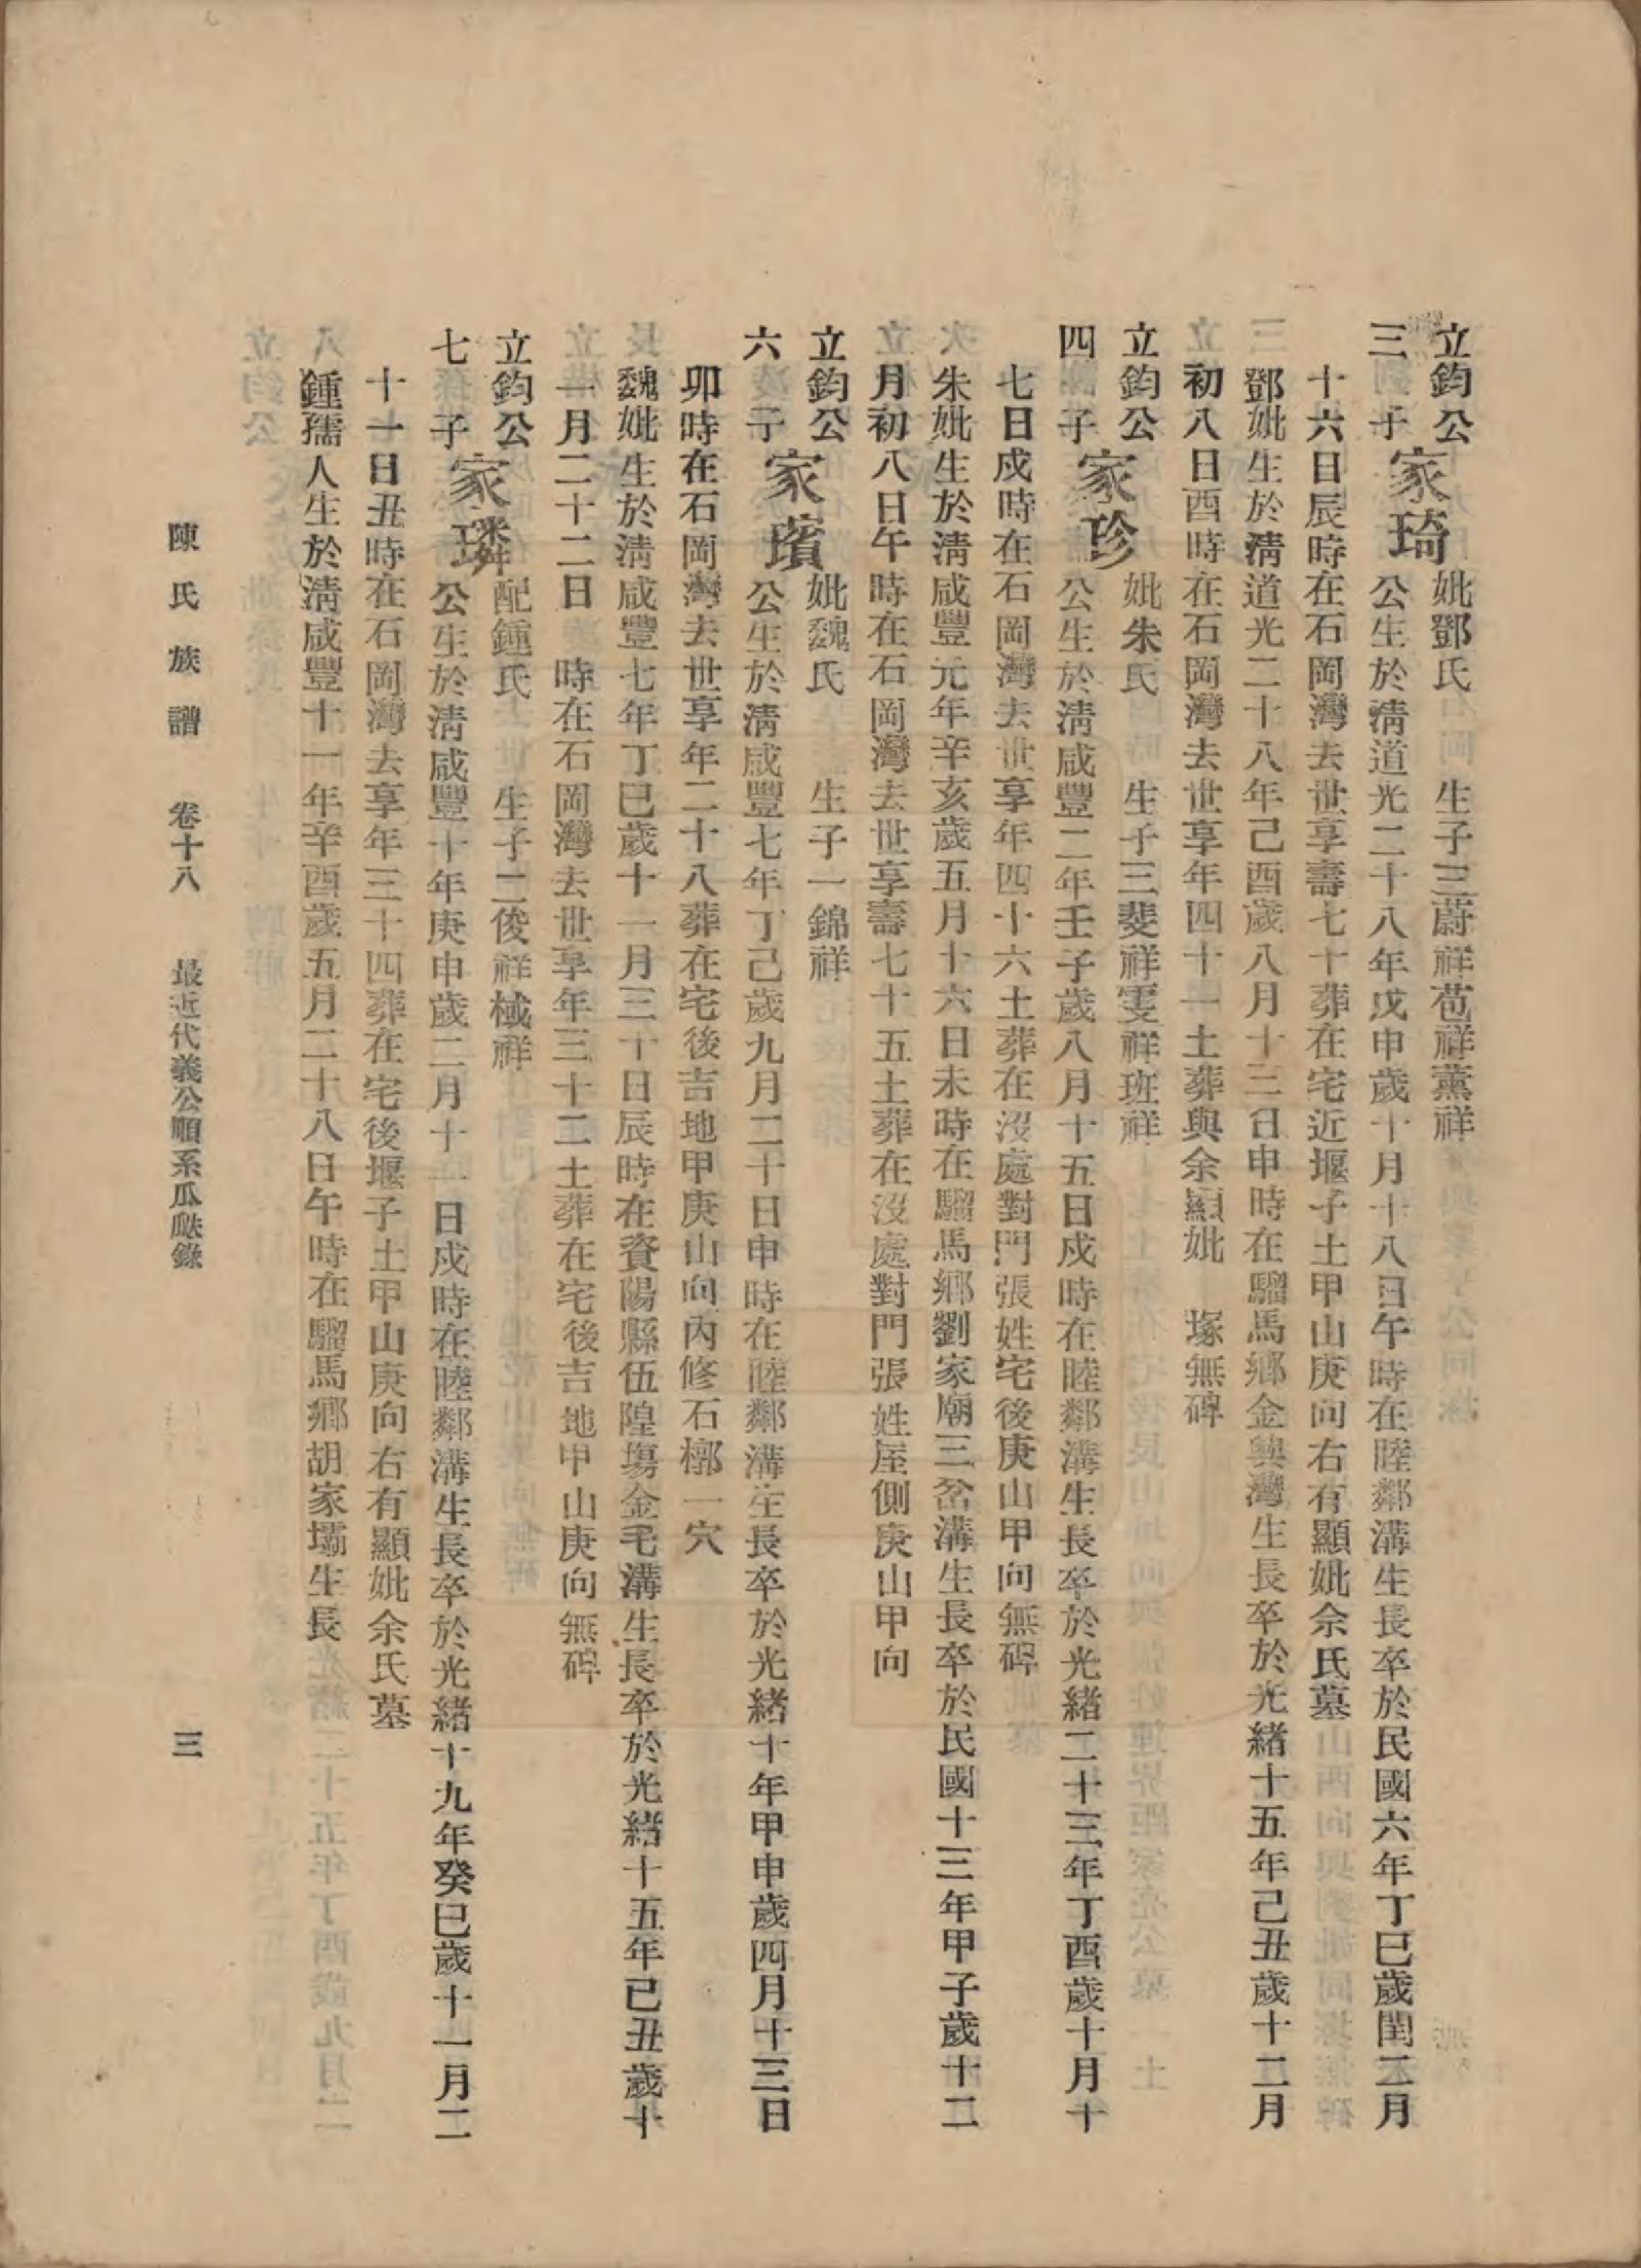 立鈞公 妣鄧氏 生子三蔚祥苞祥薰祥
三子 家琦 公生於清道光二十八年戊申歲十月十八日午時在睦鄰溝生長卒於民國六年丁巳歲閏二月
十六日辰時在石岡灣去世享壽七十葬在宅近堰子土甲山庚向右有顯妣余氏墓
鄧妣生於清道光二十八年己酉歲八月十三日申時在騮馬鄉金輿灣生長卒於光緒十五年己丑歲十二月
初八日酉時在石岡灣去世享年四十一土葬與余顯妣 塚無碑
立鈞公 妣朱氏 生子三斐祥雯祥班祥
四子 家珍 公生於清咸豐二年壬子歲八月十五日戍時在睦鄰溝生長卒於光緒二十三年丁酉歲十月十
七日戍時在石岡灣去世享年四十六土葬在沒處對門張姓宅後庚山甲向無碑
朱妣生於清咸豐元年辛亥歲五月十六日未時在騮馬鄉劉家廟三岔溝生長卒於民國十三年甲子歲十二
月初八日午時在石岡灣去世享壽七十五土葬在沒處對門張姓屋側庚山甲向
立鈞公 妣魏氏 生子一錦祥
六子 家璸 公生於清咸豐七年丁己歲九月二十日申時在睦鄰溝生長卒於光緒十年甲申歲四月十三日
卯時在石岡灣去世享年二十八葬在宅後吉地甲庚山向內修石槨一穴
魏妣生於清咸豐七年丁巳歲十一月三十日辰時在資陽縣伍隍場金毛溝生長卒於光緒十五年已丑歲十
一月二十二日 時在石岡灣去世享年三十二土葬在宅後吉地甲山庚向無碑
立鈞公 配鍾氏 生子二俊祥棫祥
七子 家璘 公生於清咸豐十年庚申歲二月十一日戍時在睦鄰溝生長卒於光緒十九年癸巳歲十一月二
十一日丑時在石岡灣去享年三十四葬在宅後堰子土甲山庚向右有顯妣余氏墓
鍾孺人生於清咸豐十一年辛酉歲五月二十八日午時在騮馬鄉胡家壩生長
陳氏族譜 卷十八 最近代義公順系瓜瓞錄 三